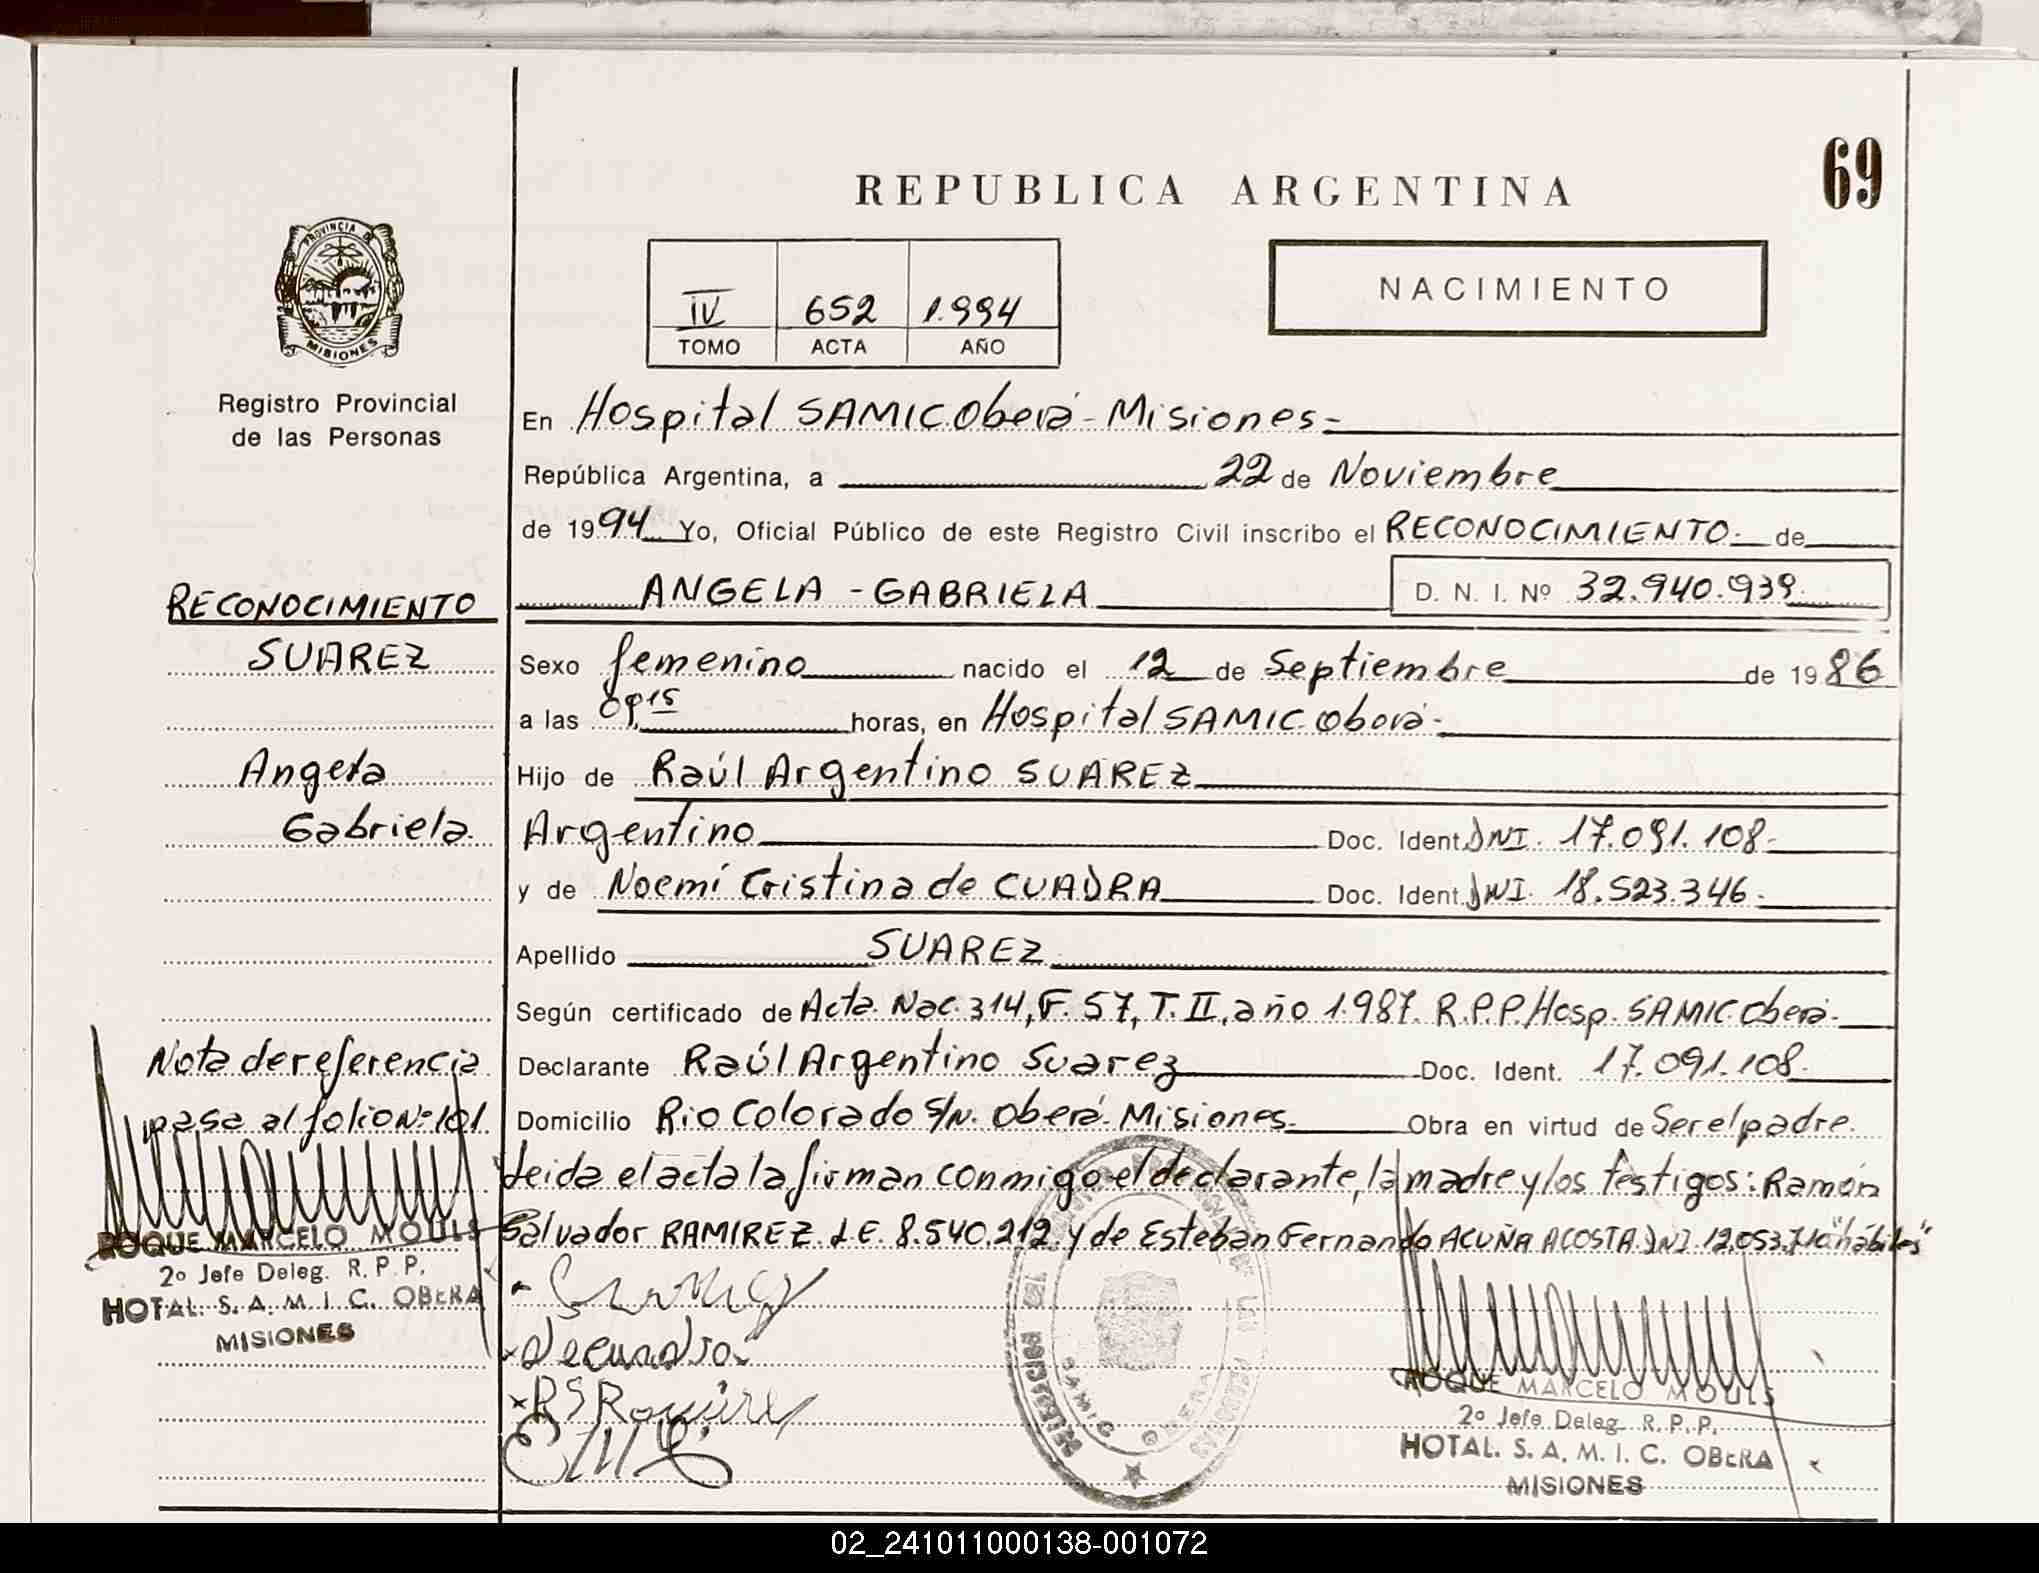 69
REPUBLICA ARGENTINA
PROVINCIA DE
MISIONES
IV 652 1.994
TOMO ACTA AÑO
NACIMIENTO
Registro Provincial
de las Personas
En Hospital SAMIC Oberá - Misiones -
República Argentina, a 22 de Noviembre
de 1994 Yo, Oficial Público de este Registro Civil inscribo el RECONOCIMIENTO. de
ANGELA - GABRIELA D. N. I. Nº 32.940.939
Sexo femenino nacido el 12 de Septiembre de 1986
a las 09,15 horas, en Hospital SAMIC Oberá -
Hijo de Raúl Argentino SUAREZ
Argentino Doc. Ident. DNI. 17.091.108-
y de Noemí Cristina de CUADRA Doc. Ident. DNI. 18.523.346-
Apellido SUAREZ
Según certificado de Acta. Nac. 314, F. 57, T. II, año 1.987. R.P.P. Hosp. SAMIC Oberá-
Declarante Raúl Argentino Suarez Doc. Ident. 17.091.108.
Domicilio Rio Colorado S/N. Oberá Misiones Obra en virtud de Ser el padre.
Leida el acta la firman conmigo el declarante, la madre y los testigos: Ramón
Salvador RAMIREZ. L.E. 8.540.212. y de Esteban Fernando ACUÑA ACOSTA. DNI. 12.053.710 "hábiles"
RECONOCIMIENTO
SUAREZ
Angela
Gabriela.
Nota de referencia
pasa al folio Nº 101.
ROQUE MARCELO MOULS
2º Jefe Deleg. R. P. P.
HOTAL. S. A. M. I. C. OBERA
MISIONES
de Cuadra
RSRamirez
SAMIC OBERA
ROQUE MARCELO MOULS
2º Jefe Deleg. R. P. P.
HOTAL. S. A. M. I. C. OBERA
MISIONES
02_241011000138-001072